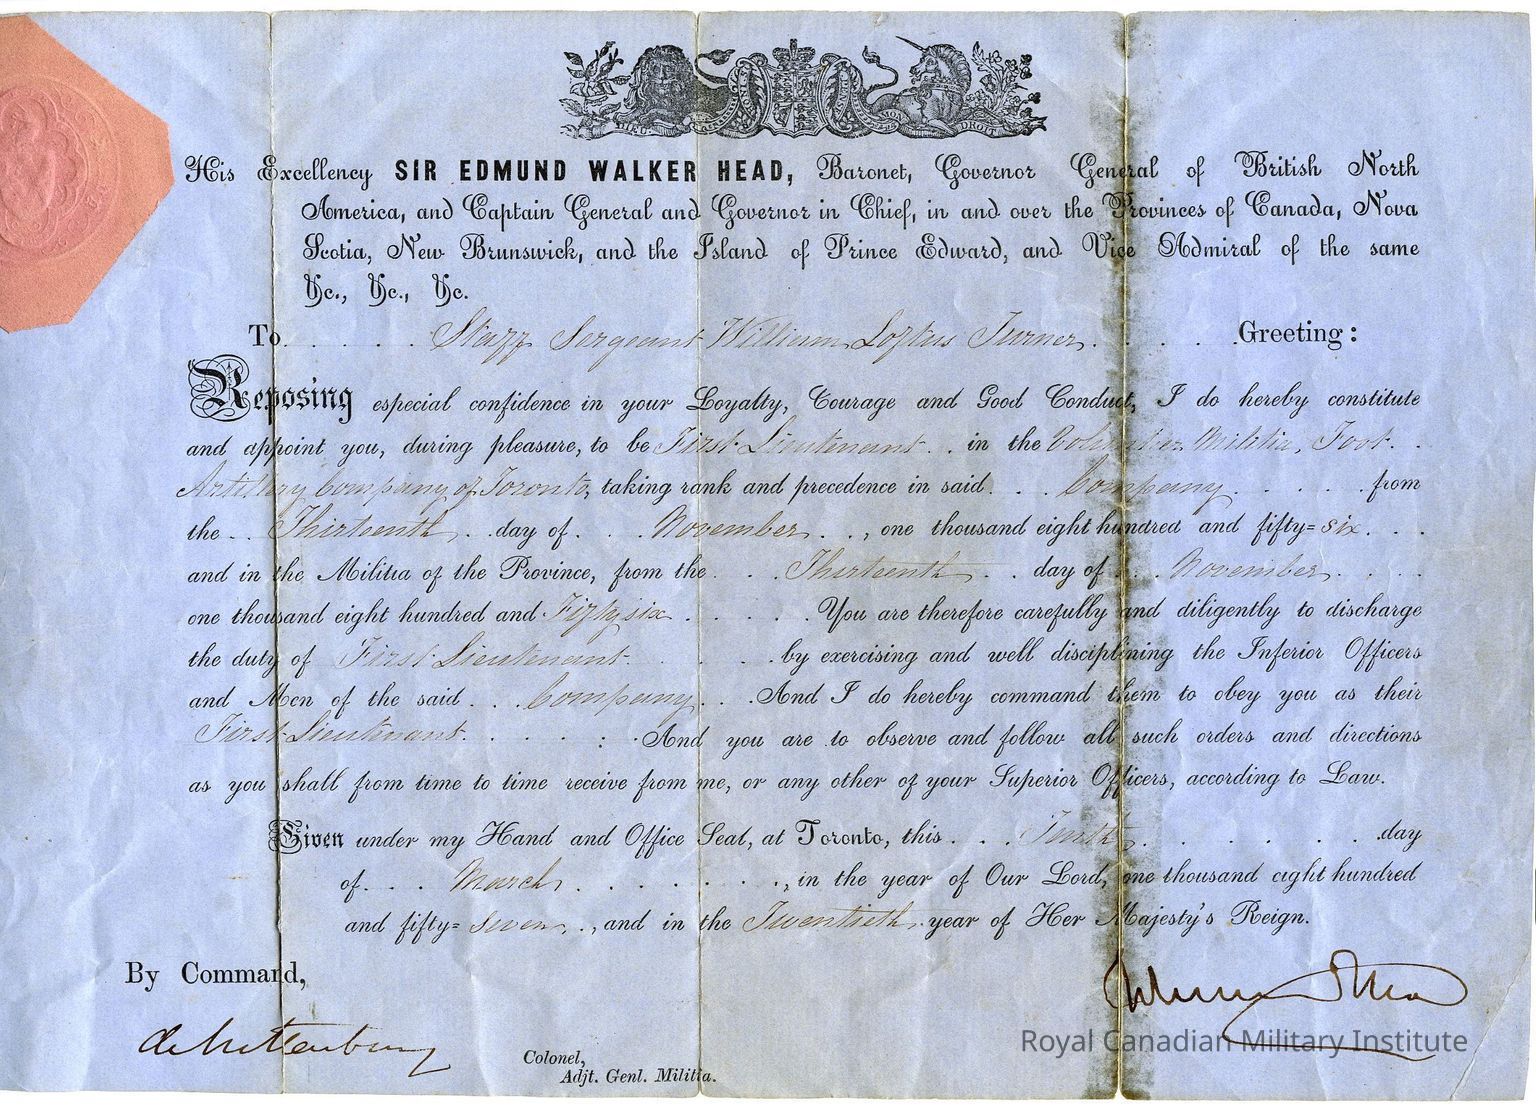 DIEU ET MON DROIT
His Excellency SIR EDMUND WALKER HEAD, Baronet, Governor General of British North
America, and Captain General and Governor in Chief, in and over the Provinces of Canada, Nova
Scotia, New Brunswick, and the Island of Prince Edward, and Vice Admiral of the same
&c., &c., &c.
To Staff Sergeant William Loftus Turner Greeting:
Reposing especial confidence in your Loyalty, Courage and Good Conduct, I do hereby constitute
and appoint you, during pleasure, to be First Lieutenant in the Volunteer Militia, Foot
Artillery Company of Toronto, taking rank and precedence in said Company from
the Thirteenth day of November, one thousand eight hundred and fifty=six
and in the Militia of the Province, from the Thirteenth day of November
one thousand eight hundred and Fifty six You are therefore carefully and diligently to discharge
the duty of First Lieutenant by exercising and well disciplining the Inferior Officers
and Men of the said Company And I do hereby command them to obey you as their
First Lieutenant And you are to observe and follow all such orders and directions
as you shall from time to time receive from me, or any other of your Superior Officers, according to Law.
Given under my Hand and Office Seal, at Toronto, this Tenth day
of March, in the year of Our Lord, one thousand eight hundred
and fifty=seven, and in the Twentieth year of Her Majesty's Reign.
By Command,
Edmund Head
de Rottenburg
Colonel,
Adjt. Genl. Militia.
Royal Canadian Military Institute